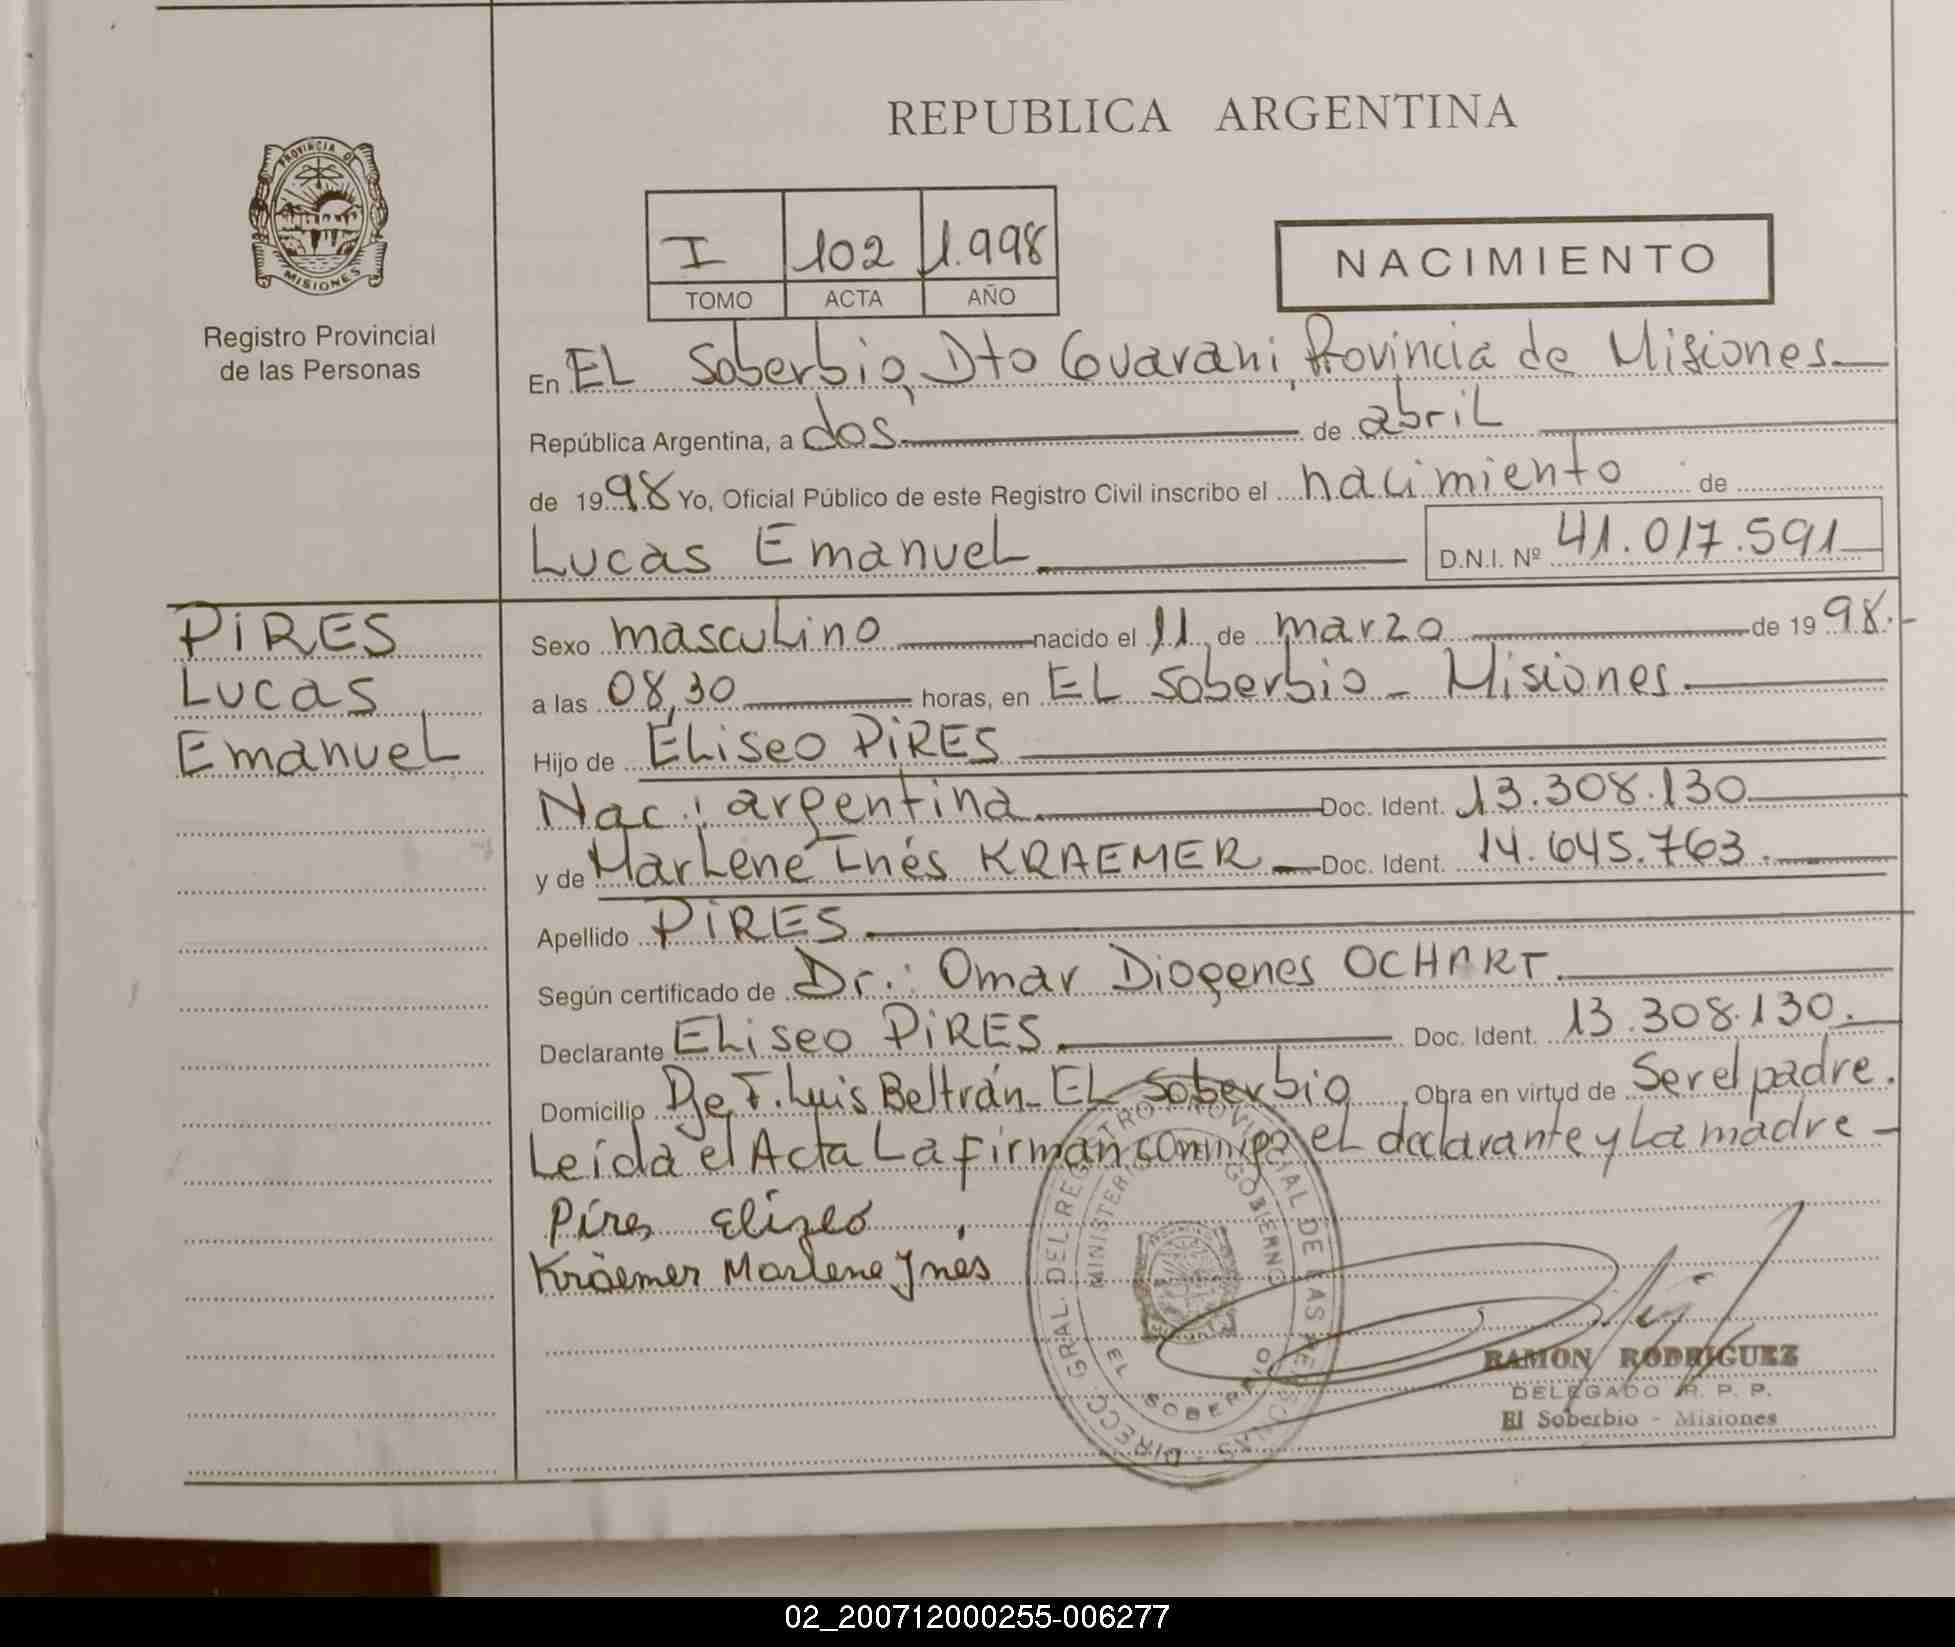 REPUBLICA ARGENTINA
PROVINCIA DE
MISIONES
Registro Provincial
de las Personas
I 102 1.998
TOMO ACTA AÑO
NACIMIENTO
En EL Soberbio, Dto Guarani, Provincia de Misiones
República Argentina, a dos de abril
de 1998 Yo, Oficial Público de este Registro Civil inscribo el nacimiento de
Lucas Emanuel D.N.I. Nº 41.017.591
PIRES
Lucas
Emanuel
Sexo masculino nacido el 11 de marzo de 1998.-
a las 08,30 horas, en EL Soberbio - Misiones
Hijo de Eliseo PIRES
Nac: argentina Doc. Ident. 13.308.130
y de Marlene Inés KRAEMER Doc. Ident. 14.645.763.
Apellido PIRES
Según certificado de Dr.: Omar Diogenes OCHART.
Declarante Eliseo PIRES Doc. Ident. 13.308.130.
Domicilio Pje F. Luis Beltrán - EL Soberbio Obra en virtud de Ser el padre.
Leída el Acta La firman conmigo el declarante y La madre -
Pires Eliseo
Kraemer Marlene Ynés
DIRECC. GRAL. DEL REGISTRO PROVINCIAL DE LAS PERSONAS
MINISTERIO GOBIERNO
EL SOBERBIO
RAMON RODRIGUEZ
DELEGADO R. P. P.
El Soberbio - Misiones
02_200712000255-006277